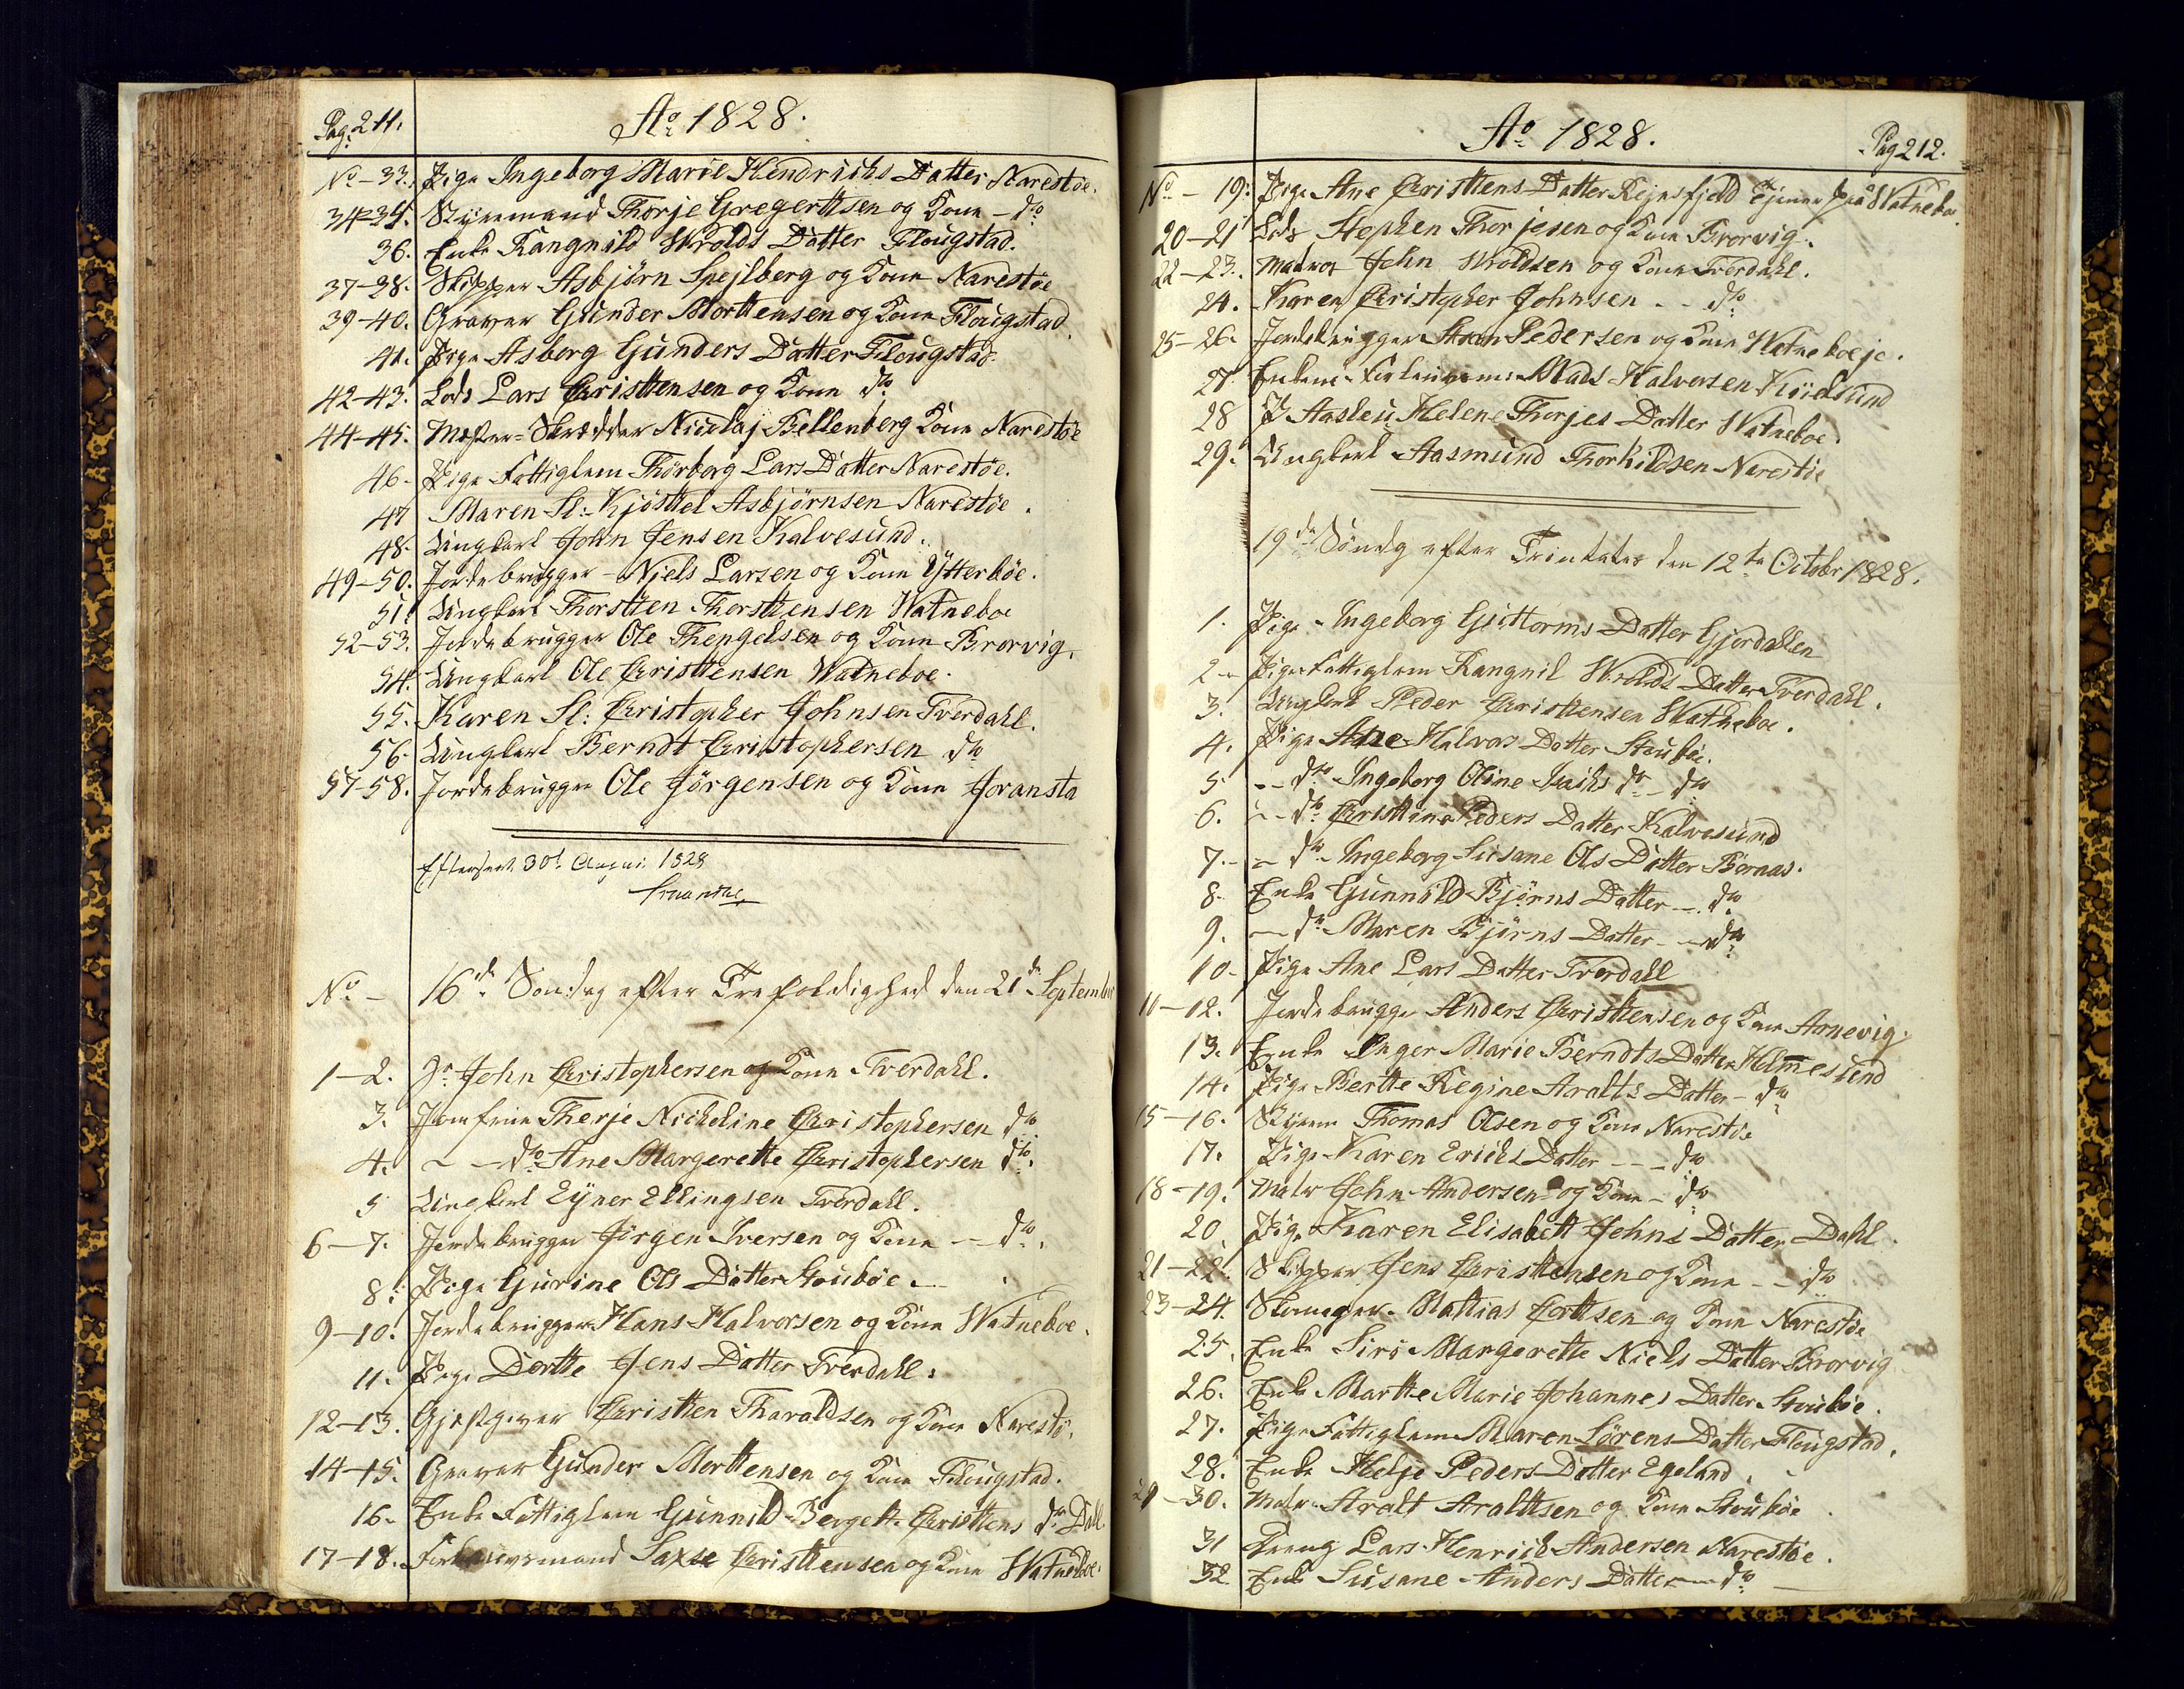 Pag: 211.
Ao 1828.
No - 33. Pige Ingeborg Marie Hendrichs Datter Narestøe.
34-35. Styrmand Thorje Gregertsen og Kone - do
36. Enke Rangnild Wrolds Datter Flougstad.
37-38. Skipper Asbjørn Spejlberg og Kone Narestøe
39-40. Graver Gunder Morttensen og Kone Flougstad
41. Pige Asborg Gunders Datter Flougstad
42-43. Lods Lars Cristtensen og Kone do
44-45. Mester-Skrædder Nicolaj Bellenberg Kone Narestøe
46. Pige Fattiglem Thorborg Lars Datter Narestøe.
47 Maren Sl: Kjøstel Asbjørnsen Narestøe.
48. Ungkarl John Jensen Kalvesund.
49-50. Jordebrugger - Njels Larsen og Kone Ytterbøe.
51. Ungkarl Thorsten Thorsttensen Watneboe
52-53. Jordebrugger Ole Thengelsen og Kone Brorvig.
54. Ungkarl Ole Cristtensen Watneboe.
55. Karen Sl: Cristopher Johnsen Tverdahl.
56. Ungkarl Berndt Cristophersen do
57-58. Jordebrugger Ole Jørgensen og Kone Joransta
Efterseet 30t August 1828
No - 16de Søndag efter Trefoldighed den 21de September
1-2. Hr John Cristophersen og Kone Tverdahl.
3. Jomfrue Therje Nickoline Cristophersen do
4. - - do Ane Margrette Cristophersen do.
5 Ungkarl Ejner Ellingsen Tverdahl.
6-7. Jordebrugger Jørgen Iversen og Kone - do.
8. Pige Gurine Ols Datter Stoubøe.
9-10. Jordebrugger Hans Halvorsen og Kone Watneboe.
11. Pige Dortte Jens Datter Tverdahl.
12-13. Gjestgiver Cristten Tharaldsen og Kone Narestø.
14-15. Graver Gunder Morttensen og Kone Flougstad.
16. Enke Fattiglem Gunnild Bergett Cristtens do Dahl
17-18. Forligelsesmand Saxse Cristtensen og Kone Watneboe.
Ao 1828.
Pag 212.
No - 19. Pige Ane Cristtens Datter Rejnsfjeld tjener paa Watneboe
20-21 Lods Stephen Thorjesen og Kone Brorvig.
22-23. Matros John Wroldsen og Kone Tverdahl.
24. Karen Cristopher Johnsen - - do
25-26. Jordebrugger Steen Pedersen og Kone Watneboeje.
27. Mads Halvorsen
28 P Aaslau Helene Thorjes Datter Watneboe.
29. Ungkarl Aasmund Thorkildsen Narestøe
19de Søndg efter Trinitates den 12te October 1828.
1. Pige - Ingeborg Guttorms Datter Gjordallen
2 - Pige Fattiglem Rangnil Wrolds Datter Tverdahl.
3. Ungkarl Peder Cristtensen Watneboe.
4. Pige Ane Halvors Datter Stoubøe.
5 - - do Ingeborg Oline Isaiks do - do
6. - - do Cristtine Peders Datter Kalvesund
7. - - do - Ingeborg Susane Ols Datter Bornas.
8. Enke Gunnild Bjørns Datter - do
9. - do Maren Bjørns Datter - do
10. Pige Ane Lars Datter Tverdahl
11-12. Jordebrugger Anders Cristtensen og Kone Arnevig.
13. Enke Inger Marie Berndts Datter Helmesund
14. Pige Bertte Regine Aralts Datter - do
15-16. Styrm Thomas Olsen og Kone Narestøe
17. Pige Karen Erichs Datter - - - do
18-19. Matr John Andersen og Kone - do
20. Pige Karen Elisabett Johns Datter Dahl.
21-22. Skipper Jens Cristtensen og Kone - - do
23-24. Skomager Mattias Corttsen og Kone Narestøe
25. Enke Siri Margerette Niels Datter Brorvig
26. Enke Martte Marie Johannes Datter Stoubøe.
27. Pige Fattiglem Maren Sørens Datter Flougstad.
28. Enke Helje Peders Datter Egeland.
29-30. Matr Aralt Aralttsen og Kone Stoubøe
31 Dreng Lars Henrich Andersen Narestøe.
32. Enke Susane Anders Datter - do